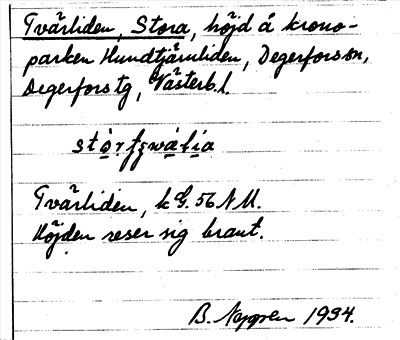 Tvärliden, Stora, höjd å krono-
parken Hundtjärnliden, Degerfors sn,
Degerfors tg, Västerb. l.
Tvärliden, k G. 56 NU.
Höjden reser sig brant.
B. Nygren 1934.